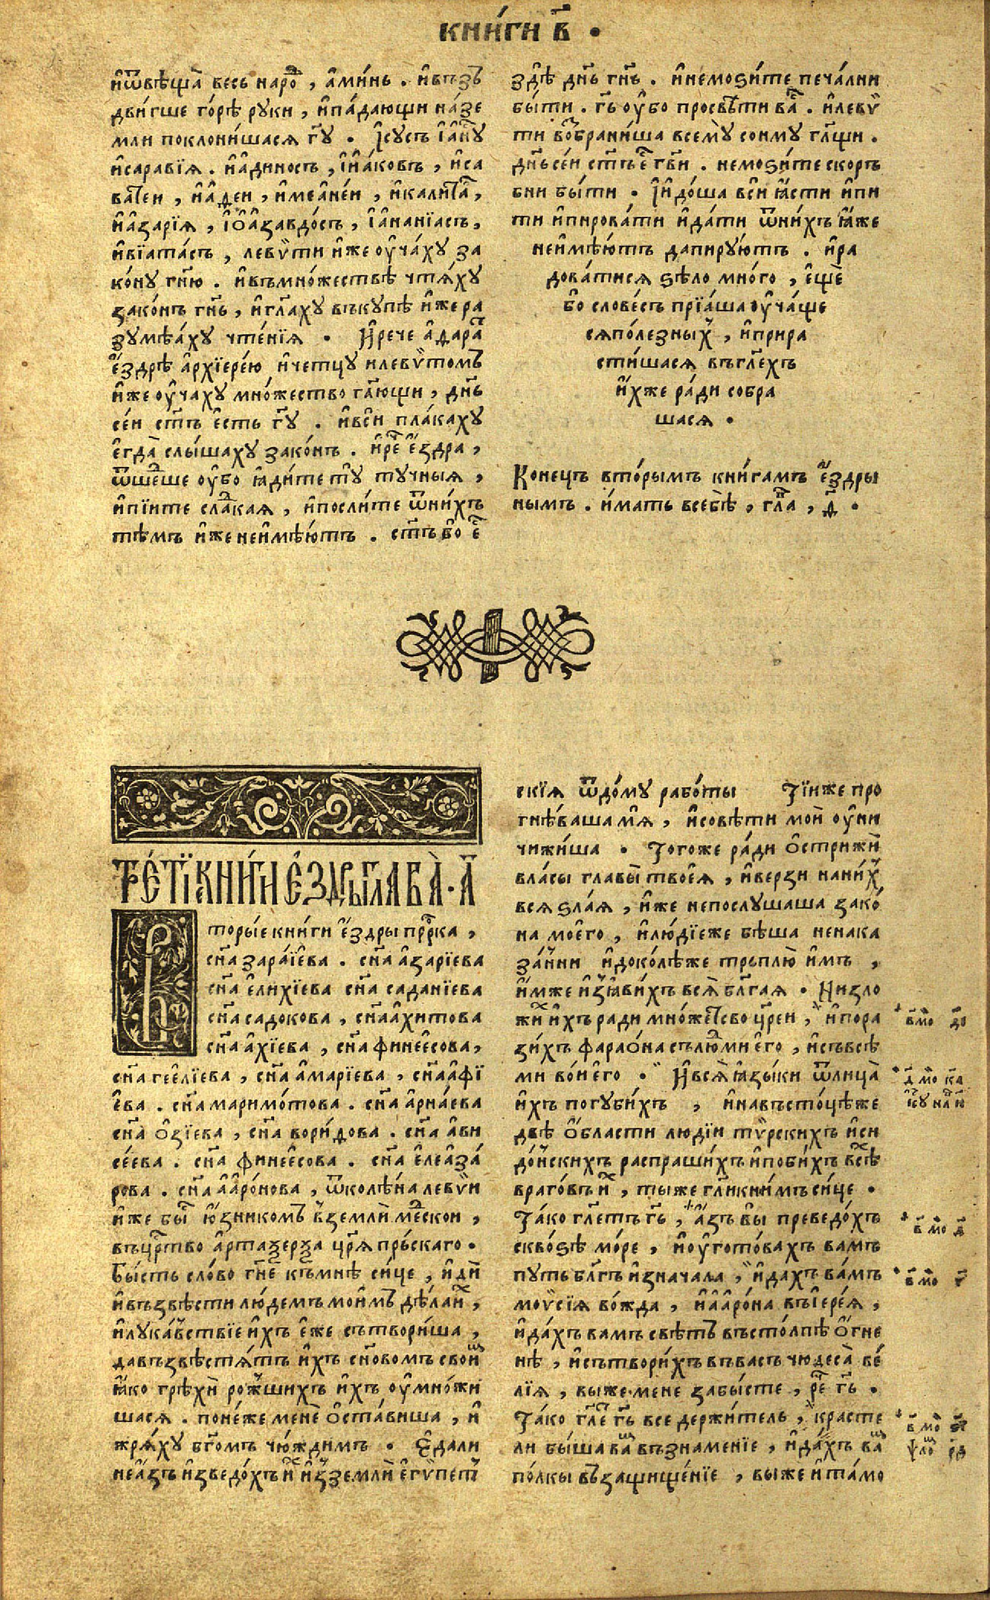 КНИ́ГИ В҃ .
ѝѿвѣща̀ весь наро́ⷣ , а҆ми́нь . ѝвъзъ
дви́гше го́рѣ руки , ѝпа́дающи на́зе
мли поклони́шася гⷭ҇у . І҆су́съ і҆а̀нꙋ
ѝсаравїя . ѝа҆динось , і҆и҆а́ковъ , ѝса
зако́нъ гн҃ь , ѝгл҃аху въкупѣ ѝже ра
зумѣа́ху чте́нїя . И҆рече а҆дара
е҆́здрѣ а҆рхїере́ю ѝчетцу̀ илевѵ́томъ
ѝже оу҆ча́ху мно́жество гл҃ющи , дн҃ь
се́и ст҃ъ е҆́сть гⷭ҇у . ѝвси̑ пла́каху
е҆гда̀ слы́шаху зако́нъ . ѝреⷱ҇ е҆́здра ,
ѿше́ше оу҆̀бо ꙗ҆ди́те тꙋ́ тꙋчныя ,
ѝпїи́те слаⷣкая , ѝпосли́те ѿни́хъ
тѣ́мъ ѝже неѝмѣ́ютъ . ст҃ъ бо̀ еⷭ҇
здѣ̀ дн҃ь гн҃ь . ѝнемоѕи́те печа́лни
бы́ти . гⷭ҇ь оу҆́бо просвѣти ва . ѝлевѵ
ти возбрани́ша всемꙋ̀ сонмꙋ гл҃щи .
дн҃ьсе́и ст҃ъ еⷭ҇ гв҃и . немоѕи́те скорь
бни бы́ти . Ѝи҆до́ша вси̑ ꙗ҆́сти ѝпи
ти ѝпирова́ти ѝда́ти ѿни́хъ ꙗ҆́же
неѝмѣ́ютъ дапирꙋ́ютъ . ѝра
дова́тися ѕѣло̀ мно́го , е҆щѐ
бо словесъ прїа́ша оу҆ча́ще
ся поле́зныⷯ , ѝприра
сти́шася въгл҃ехъ
ѝхже ра́ди собра
шася .
Коне́цъ вто́рымъ кни́гамъ е҆́здры
нымъ . ѝ́мать всебѣ̀ , гла , д҃ .
ТРЕ́ТЇИ КНИ́ГИ Е҆ЗДРЫ ГЛАВА̀ . А҃
Вторы́е кни́ги е҆́здры прⷪ҇рка ,
сн҃а зараі́ева . сн҃а а҆зарі́ева
сн҃а е҆лихі́ева сн҃а саданї́ева
сн҃а садокова , сн҃а а҆хитова
сн҃а а҆хі́ева , сн҃а финее́сова ,
сн҃а гее҆лі́ева , сн҃а а҆марі́ева , сн҃а а҆фї
е҆ва . сн҃а маримо́това . сн҃а а҆рна́ева
сн҃а о҆зїева , сн҃а вори́дова . сн҃а а҆ви
се́ева . сн҃а финее́сова . сн҃а е҆леаза́
рова . сн҃а а҆аро́нова , ѿколѣ́на левѵ́и
ѝже быⷭ҇ ю҆́зникомъ вземлѝ меⷣскои ,
въцрⷭ҇тво а҆ртаѯе́рѯа цр҃я пръ́скаго .
Бы́сть сло́во гн҃е къмнѣ̀ си́це , ѝди̑
ѝвъзвѣсти лю́демъ моимъ дѣла иⷯ ,
ѝлꙋка́вствїе ѝхъ е҆же сътвори́ша ,
давъзвѣстя́тъ ѝхъ сн҃овомъ свои
ꙗ҆́ко грѣхѝ ро́ждшихъ ѝхъ оу҆мно́жи
шася . поне́же менѐ о҆ста́виша , ѝ
жря́хꙋ бг҃омъ чю́ждимъ . Е҆дали
неа҆́зъ ѝзведо́хъ иⷯ ѝзземлѝ е҆гѵ́пет
скїя ѿдо́мꙋ рабо́ты Ті́иже про
гнѣ́ваша мя , ѝсовѣ́ти мои̑ оу҆ни
чижи́ша . Тогоже ра́ди о҆стрижѝ
власы̀ главы̀ твоея̀ , ѝве́рзи на ниⷯ
вся ѕла́я , ѝже непослꙋ́шаша зако́
на моего̀ , ѝлю́дїеже бѣ́ша ненака
за́нни ѝдоко́лѣже тръплю̀ ѝмъ ,
ѝмже ѝзꙗ҆ви́хъ вся̀ бл҃гая . Низло
жиⷯ ѝхъ ради мно́жество цр҃еи , ѝпора
зи́хъ фарао́на сълюⷣми е҆го̀ , ѝсъвсѣ
ми во́и е҆го . И҆вся̀ ꙗ҆зы́ки ѿлица̀
ѝхъ погꙋби́хъ , ѝнавъсто́цѣже
двѣ̀ о҆́бласти лю́дїи тѵ́рскихъ ѝси
до́нскихъ распраши́хъ ѝпоби́хъ всѣ
враго́въ иⷯ , ты́же гл҃и кни́мъ си́це .
Та́ко гл҃етъ гь , а҆́зъ вы̀ преведо́хъ
сквоѕѣ̀ мо́ре , ѝоу҆гото́вахъ вамъ
пꙋть бл҃гъ ѝзнача́ла , ѝда́хъ ва́мъ
моѵсїя вожда , ѝа҆аро́на въіере́я ,
ѝда́хъ вамъ свѣ́тъ въсто́лпѣ о҆́гне
нѣ , ѝсътвори́хъ въва́съ чюдеса̀ ве́
лїя , вы́же мене забы́сте , реⷱ҇ гь .
Та́ко гл҃е гь вседержи́тель , кра́сте
ли бы́ша ва въ зна́менїе , ѝда́хъ ва
по́лки въ защище́нїе , вы́же ѝта́мо